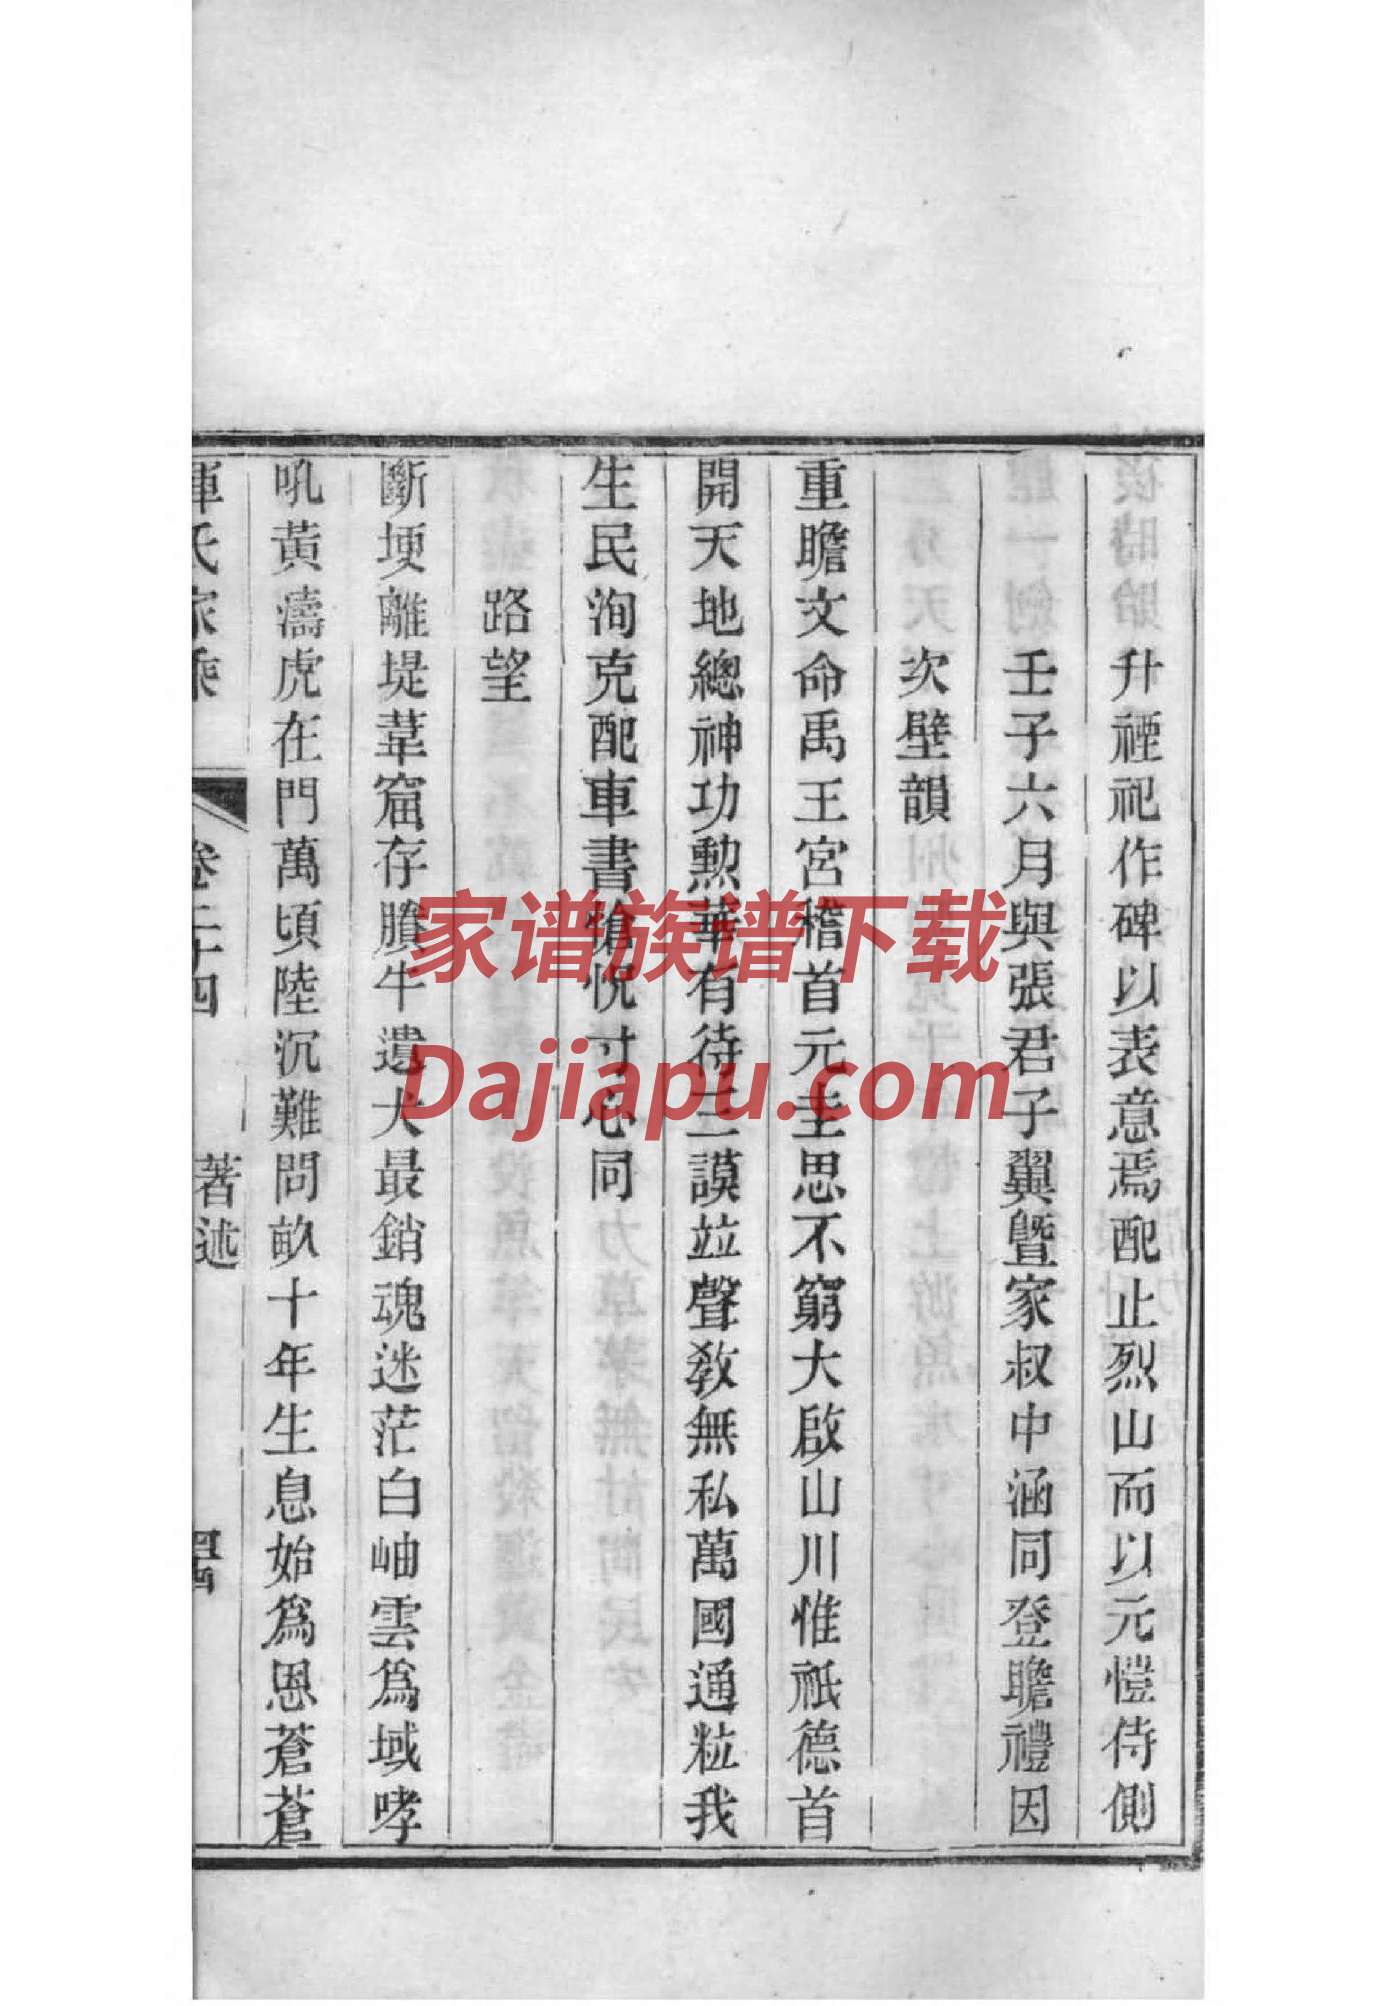 升禋祀作碑以表意焉配止烈山而以元愷侍側
壬子六月與張君子翼曁家叔中涵同登瞻禮因
次壁韻
重瞻文命禹王宮稽首元圭思不窮大啟山川惟祇德首
開天地總神功勲華有待三謨竝聲敎無私萬國通粒我
生民洵克配車書愴怳寸心同
路望
斷埂離堤葦窟存騰牛遺犬最銷魂迷茫白岫雲爲域哮
吼黃濤虎在門萬頃陸沉難問畝十年生息始爲恩蒼蒼
惲氏家乘
卷二十四
著述
家谱族谱下载
Dajiapu.com